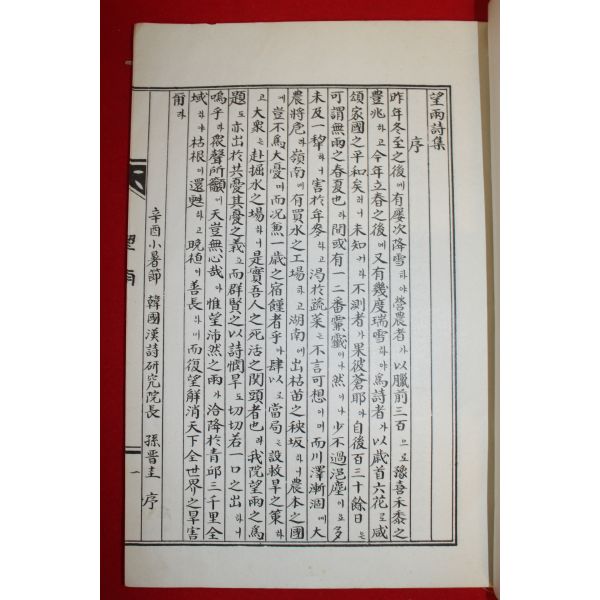 望雨詩集
序
昨年冬至之後에有屢次降雪하야營農者가以臘前三百으로豫喜禾黍之
豊兆하고今年立春之後에又有幾度瑞雪하야爲詩者가以歲首六花로咸
頌家國之平和矣러니未知케라不測者가果彼蒼耶아自後百三十餘日는
可謂無雨之春夏也라間或有一二番霢霂이나然이나少不過浥塵이요多
未及一犂하니害於牟麥하고渴於蔬菜는不言可想이며而川澤漸涸에大
農將危라嶺南에有買水之工場하고湖南에出枯苗之秧坂하니農本之國
에豈不爲大憂며而況兼一歲之宿饉者乎아肆以로當局는設救旱之策하
고大衆는赴掘水之場하니是實吾人之死活之関頭者也라我院望雨之爲
題도亦出於共憂其憂之義요而群賢之以詩憫旱도切切若一口之出하니
嗚乎라衆聲所籲에天豈無心哉아惟望沛然之雨가洽降於青邱三千里全
域하야枯根이還甦하고晩植이善長하며而復望解消天下全世界之旱害
爾라
辛酉小暑節 韓國漢詩研究院長 孫晋圭 序
望雨
一